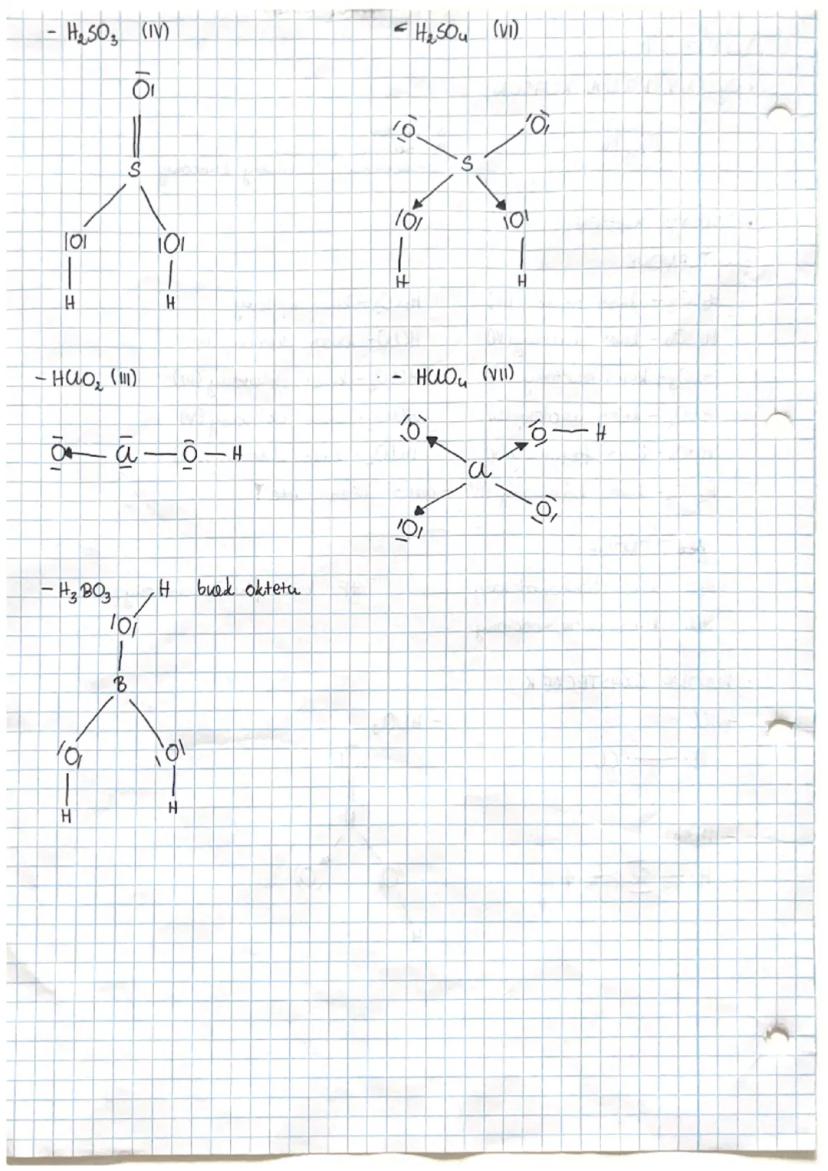 - H₂SO₃ (IV)
O
S
O O
H H
- H₂SO₄ (VI)
O O
S
O O
H H
- HClO₂ (III)
O Cl O H
- HClO₄ (VII)
O O H
Cl
O O
- H₃BO₃ H brak oktetu
O
B
O O
H H